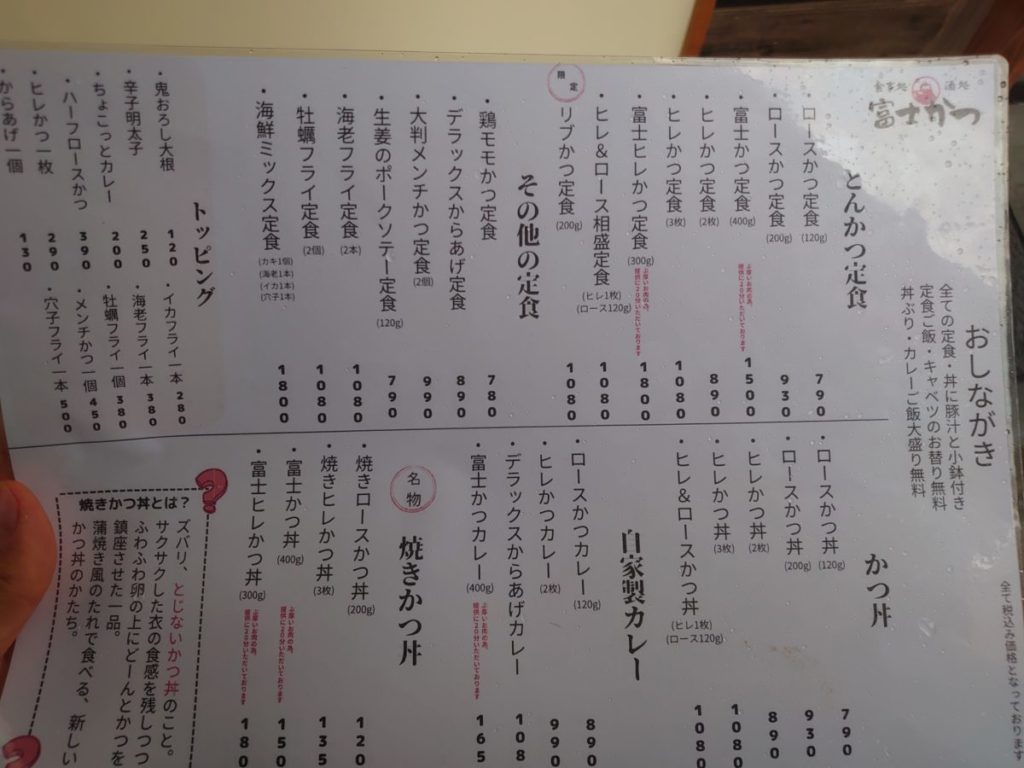 食事処 酒処
富士かつ
おしながき
全ての定食・丼に豚汁と小鉢付き
定食ご飯・キャベツのお替り無料
丼ぶり・カレーご飯大盛り無料
全て税込み価格となっております
とんかつ定食
・ロースかつ定食(120g) 790
・ロースかつ定食(200g) 930
・富士かつ定食(400g) 1500
上厚いお肉の為、
提供に20分いただいております
・ヒレかつ定食(2枚) 890
・ヒレかつ定食(3枚) 1080
・富士ヒレかつ定食(300g) 1800
上厚いお肉の為、
提供に20分いただいております
・ヒレ&ロース相盛定食(ヒレ1枚)(ロース120g) 1080
限定
・リブかつ定食(200g) 1080
その他の定食
・鶏モモかつ定食 780
・デラックスからあげ定食 890
・大判メンチかつ定食(2個) 990
・生姜のポークソテー定食(120g) 790
・海老フライ定食(2本) 1080
・牡蠣フライ定食(2個) 1080
・海鮮ミックス定食(カキ1個)(海老1本)(イカ1本)(穴子1本) 1800
トッピング
・鬼おろし大根 120
・辛子明太子 250
・ちょこっとカレー 200
・ハーフロースかつ 390
・ヒレかつ一枚 290
・からあげ一個 130
・イカフライ一本 280
・海老フライ一本 380
・牡蠣フライ一個 380
・メンチかつ一個 450
・穴子フライ一本 500
かつ丼
・ロースかつ丼(120g) 790
・ロースかつ丼(200g) 930
・ヒレかつ丼(2枚) 890
・ヒレかつ丼(3枚) 1080
・ヒレ&ロースかつ丼(ヒレ1枚)(ロース120g) 1080
自家製カレー
・ロースかつカレー(120g) 890
・ヒレかつカレー(2枚) 990
・デラックスからあげカレー 108
・富士かつカレー(400g) 165
上厚いお肉の為、
提供に20分いただいております
名物
焼きかつ丼
・焼きロースかつ丼(200g) 120
・焼きヒレかつ丼(3枚) 135
・富士かつ丼(400g) 150
上厚いお肉の為、
提供に20分いただいております
・富士ヒレかつ丼(300g) 180
上厚いお肉の為、
提供に20分いただいております
焼きかつ丼とは？
ズバリ、とじないかつ丼のこと。
サクサクした衣の食感を残しつつ
ふわふわ卵の上にどーんとかつを
鎮座させた一品。
蒲焼き風のたれで食べる、新しい
かつ丼のかたち。